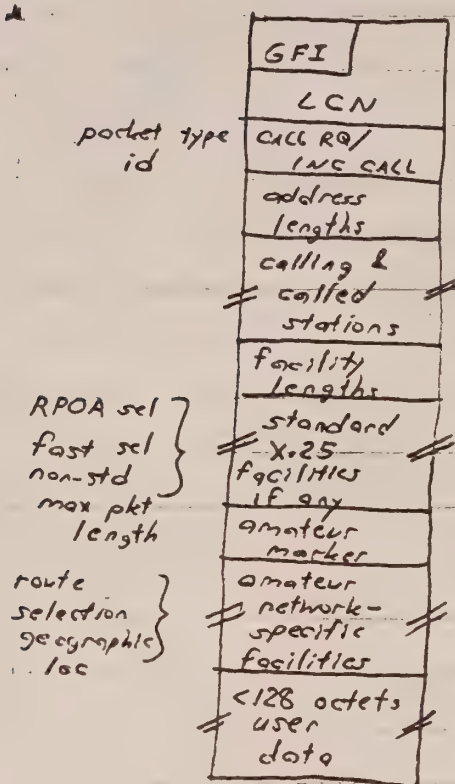 GFI
LCN
packet type
id
CALL RQ/
INC CALL
address
lengths
calling &
called
stations
facility
lengths
RPOA sel
fast sel
non-std
max pkt
length
standard
X.25
facilities
if any
amateur
marker
route
selection
geographic
loc
amateur
network-
specific
facilities
<128 octets
user
data